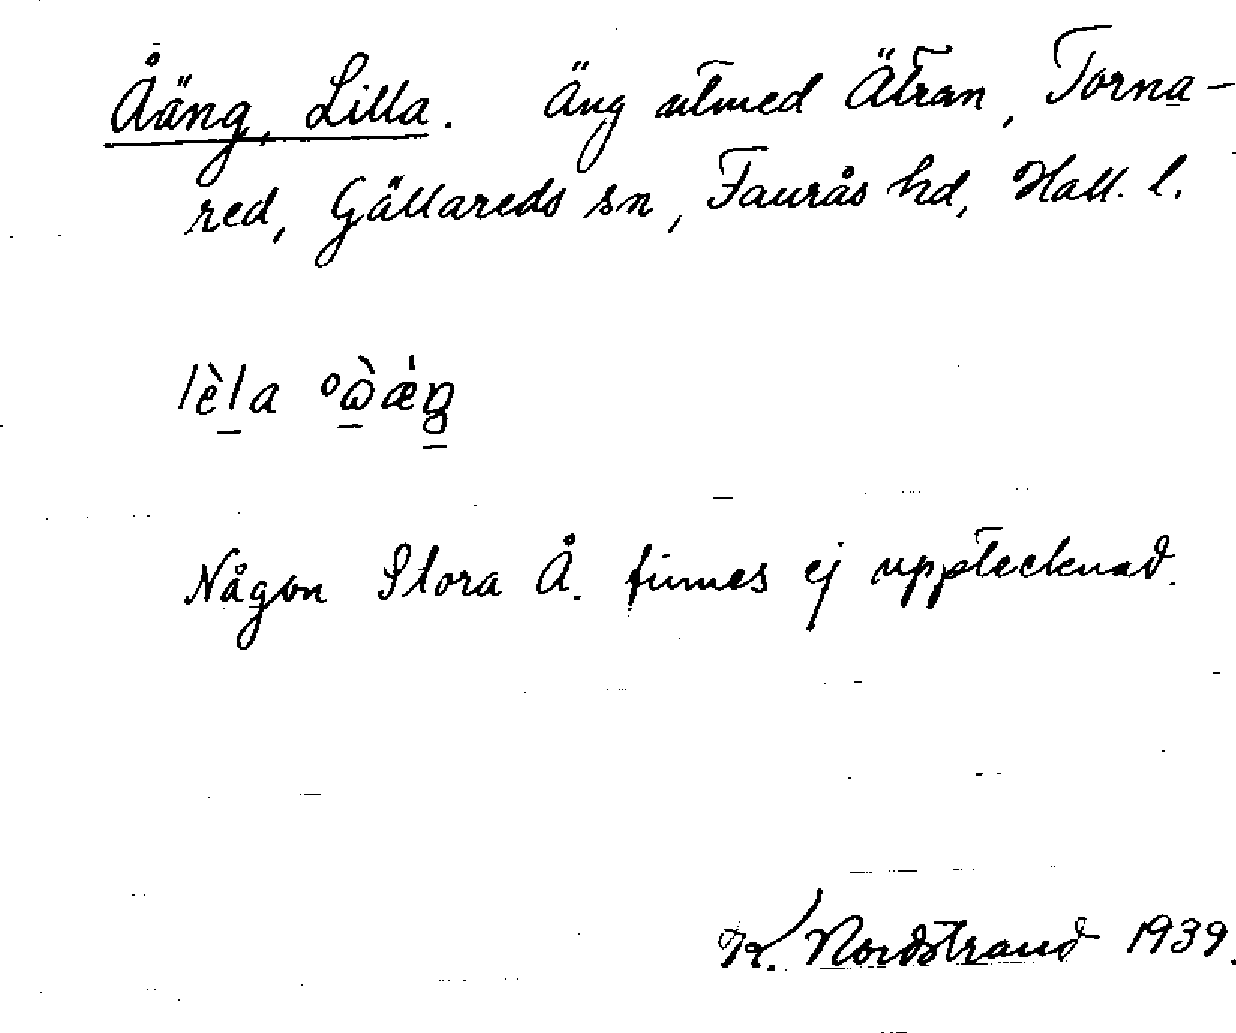 Åäng, Lilla. Äng utmed Ätran, Torna-
red, Gällareds sn, Faurås hd, Hall. l.
lèla
Någon Stora Å. finnes ej upptecknad.
K. Nordstrand 1939.